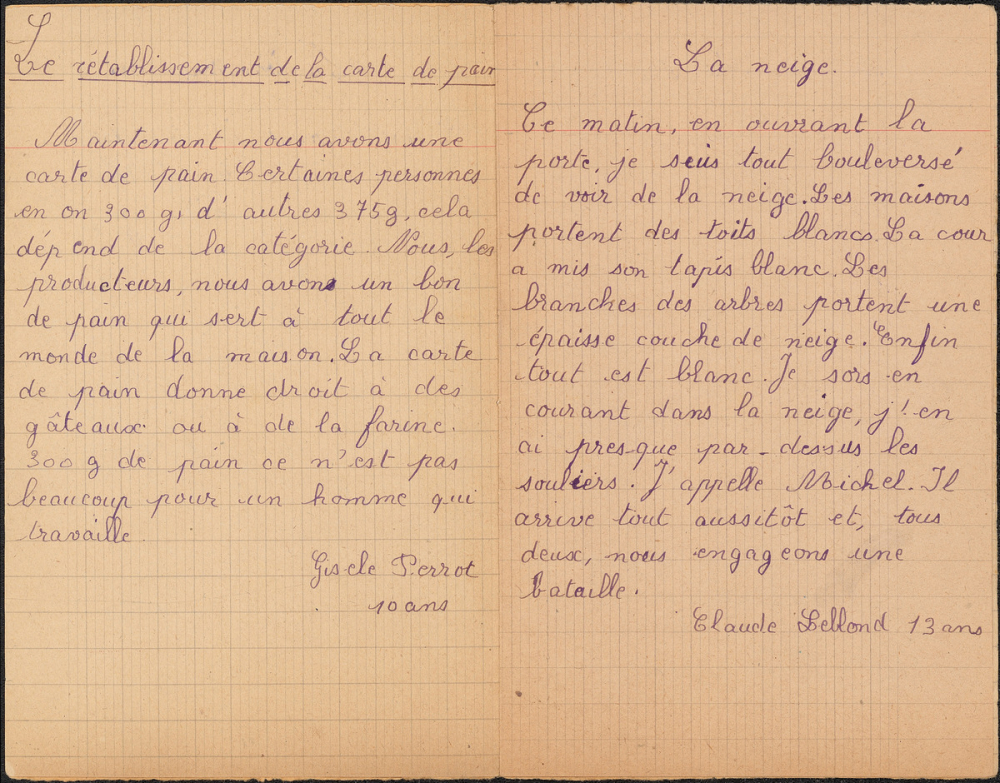 L
Le rétablissement de la carte de pain
Maintenant nous avons une
carte de pain. Certaines personnes
en on 300 g, d' autres 375g, cela
dépend de la catégorie. Nous, les
producteurs, nous avons un bon
de pain qui sert à tout le
monde de la maison. La carte
de pain donne droit à des
gâteaux ou à de la farine.
300 g de pain ce n'est pas
beaucoup pour un homme qui
travaille.
Gisele Perrot
10 ans
La neige.
Ce matin, en ouvrant la
porte, je suis tout bouleversé
de voir de la neige. Les maisons
portent des toits blancs. La cour
a mis son tapis blanc. Les
branches des arbres portent une
épaisse couche de neige. Enfin
tout est blanc. Je sors en
courant dans la neige, j'en
ai presque par-dessus les
souliers. J'appelle Michel. Il
arrive tout aussitôt et, tous
deux, nous engageons une
bataille.
Claude Leblond 13 ans